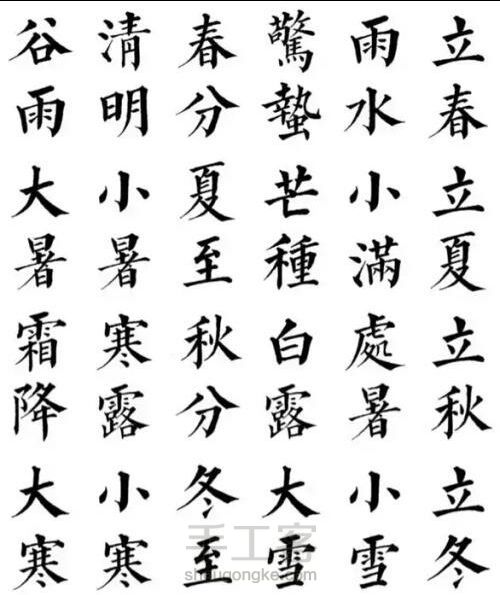 立春
雨水
驚蟄
春分
清明
谷雨
立夏
小滿
芒種
夏至
小暑
大暑
立秋
處暑
白露
秋分
寒露
霜降
立冬
小雪
大雪
冬至
小寒
大寒
手工客
shougongke.com